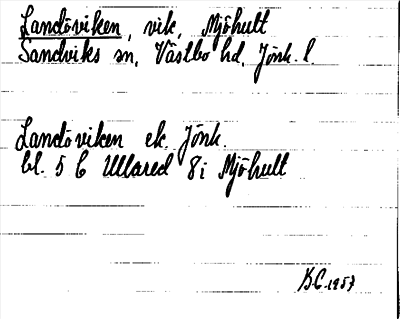 Landöviken, vik, Mjöhult
Sandviks sn, Västbo hd, Jönk. l.
Landöviken ek. Jönk.
bl. 5 C Ullared 8i Mjöhult
B.C. 1957